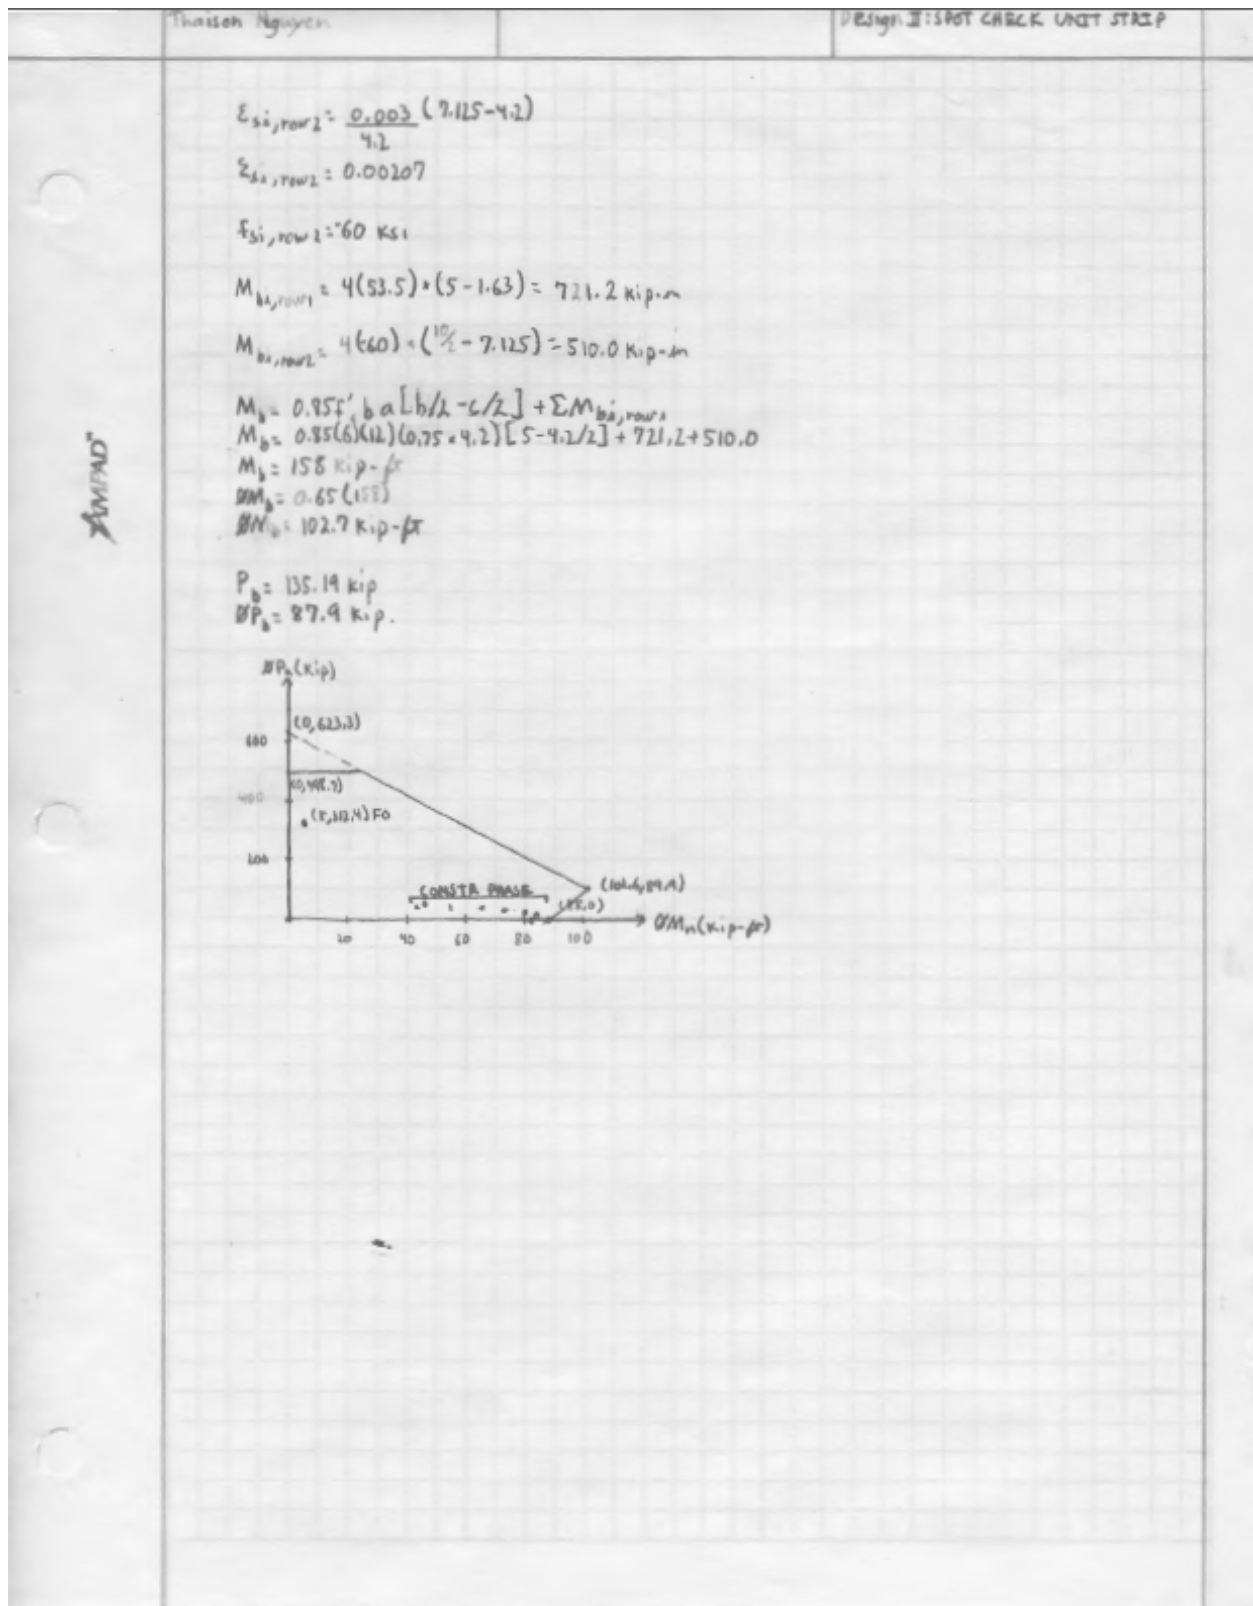 Thaison Nguyen
Design II: SPOT CHECK UNIT STRIP
εsi,row2 = 0.003/4.2 (7.125-4.2)
εsi,row2 = 0.00207
fsi,row2 = -60 ksi
Mbi,row1 = 4(53.5)*(5-1.63) = 721.2 kip-in
Mbi,row2 = 4(-60)*(10/2 - 7.125) = 510.0 kip-in
Mb = 0.85f'c b a [b/2 - c/2] + ΣMbi,rows
Mb = 0.85(6)(12)(0.75*4.2)[5-4.2/2] + 721.2 + 510.0
Mb = 158 kip-ft
ØMb = 0.65(158)
ØMb = 102.7 kip-ft
Pb = 135.19 kip
ØPb = 87.9 kip.
ØPn(kip)
(0,623.3)
600
(0,498.7)
400
F0
200
CONSTR PHASE
ØMn(kip-ft)
20 40 60 80 100
AMPAD